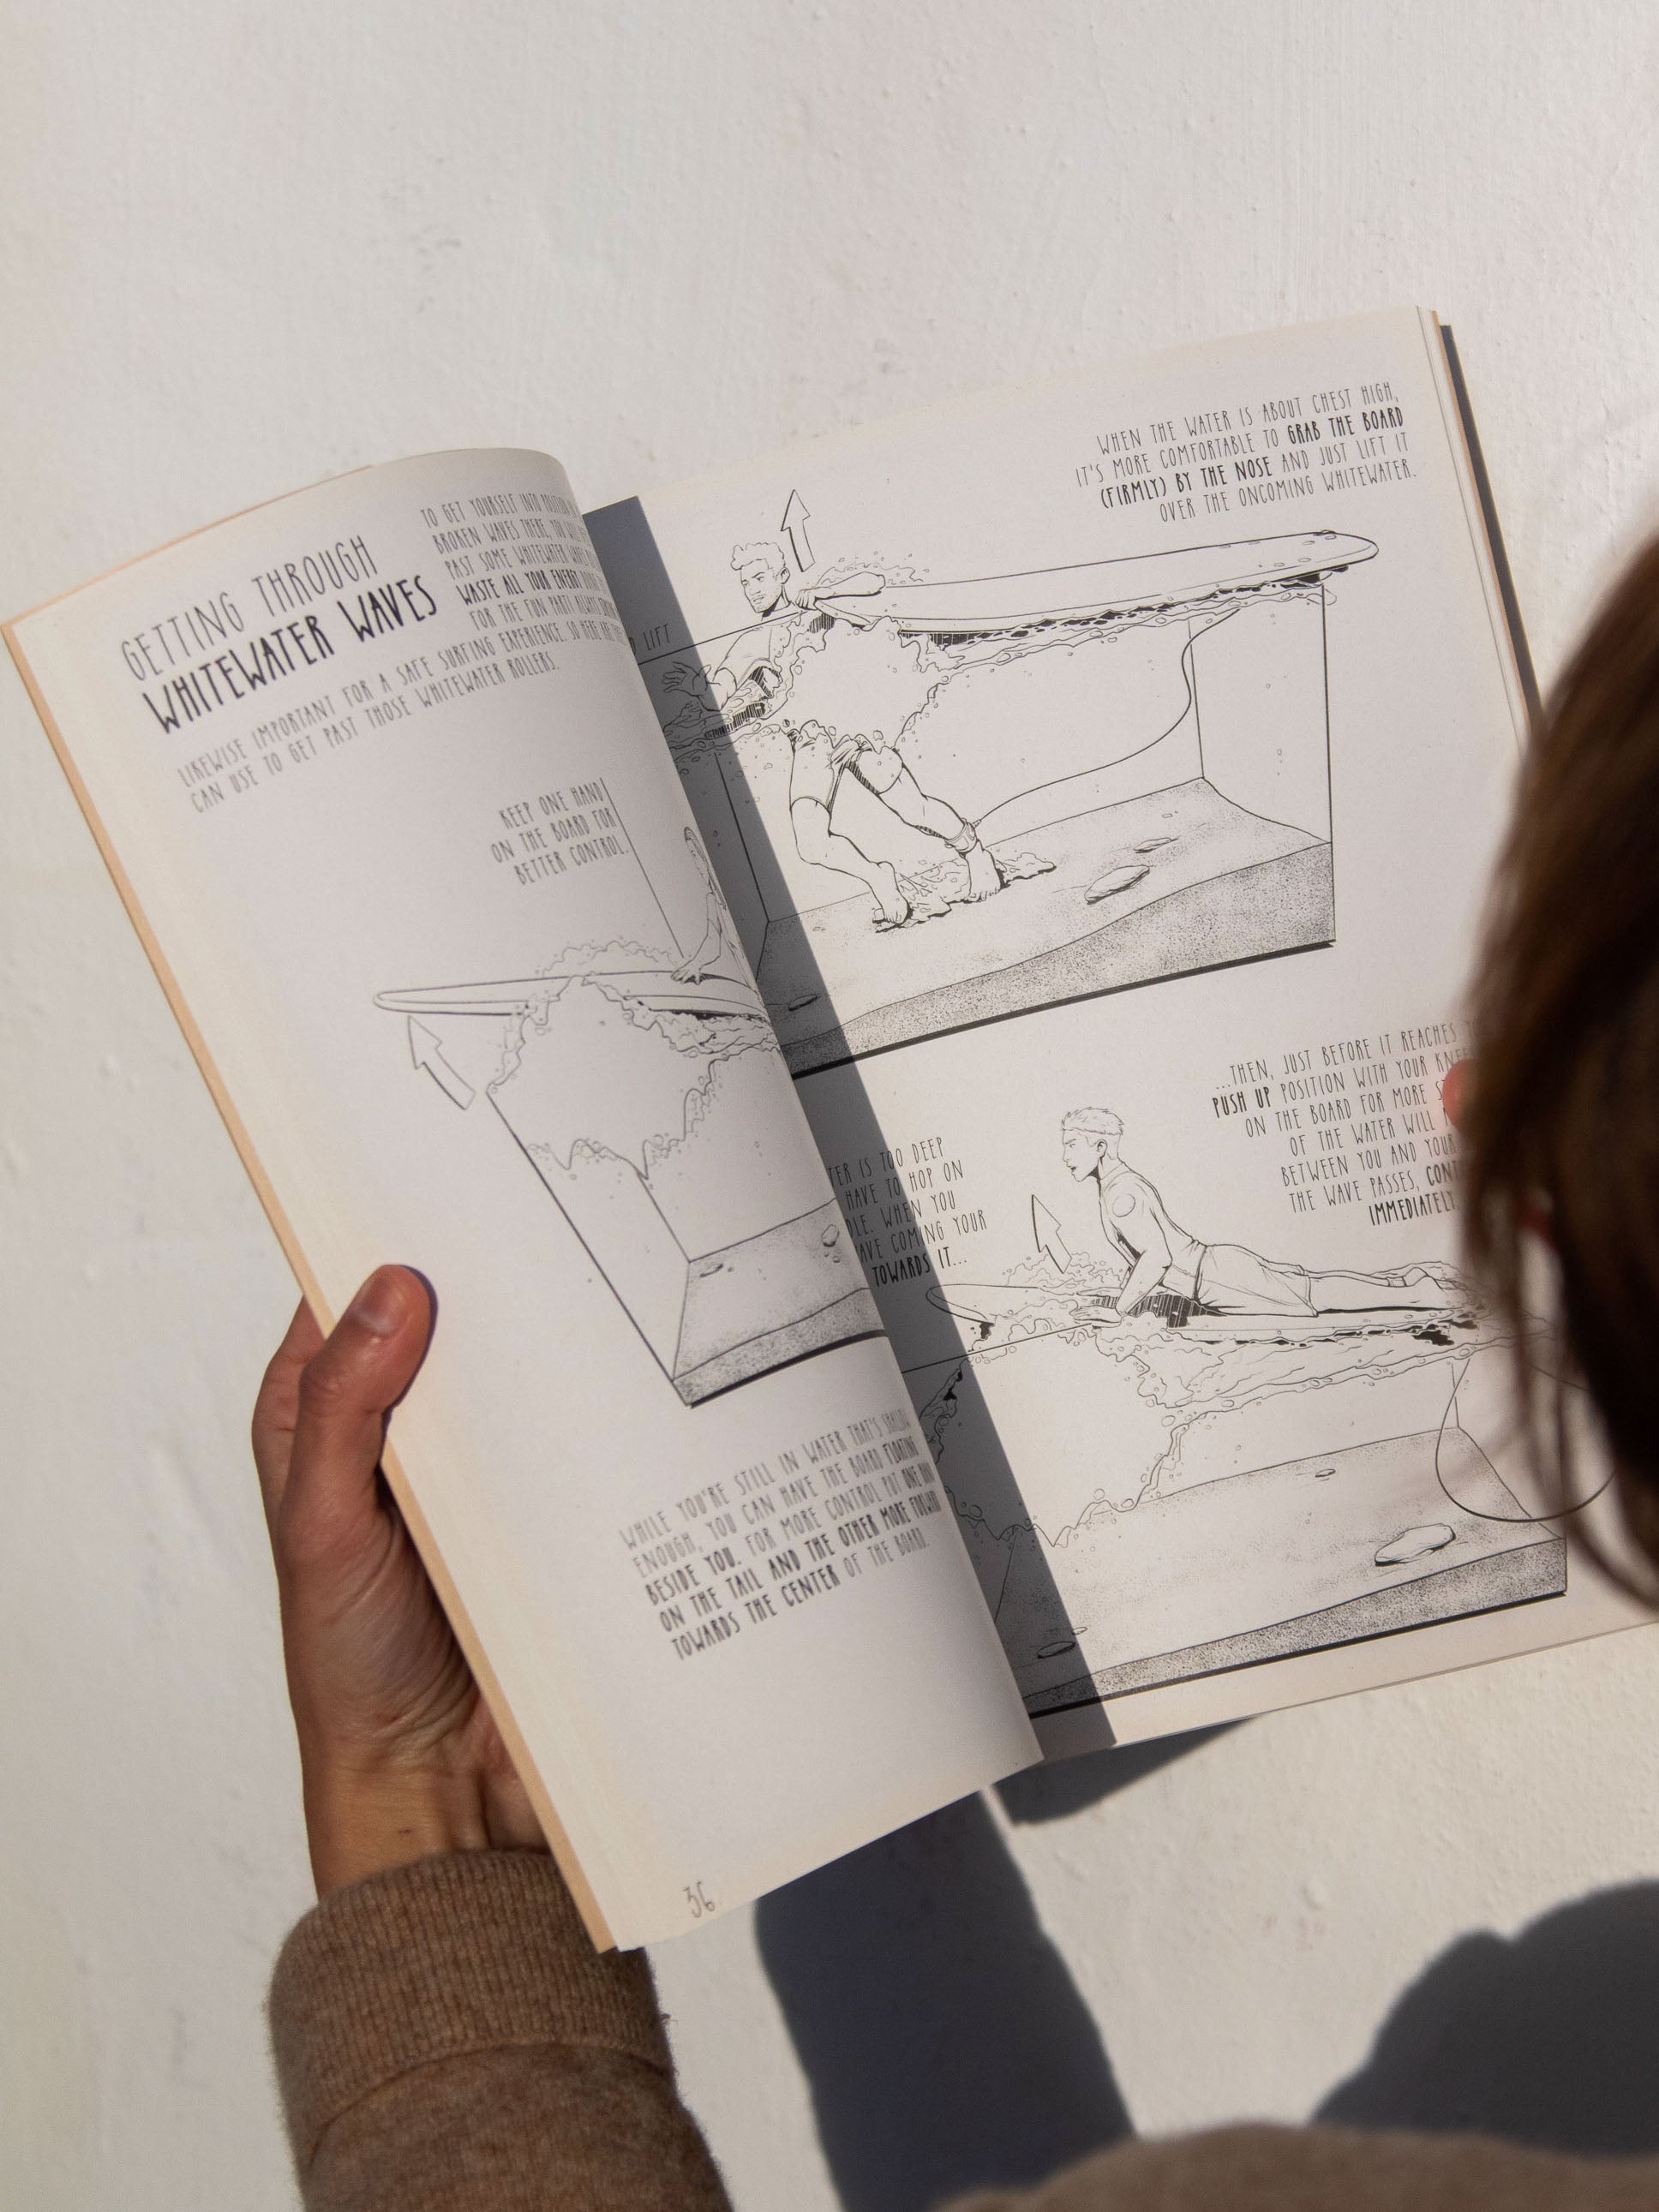 GETTING THROUGH
WHITEWATER WAVES
TO GET YOURSELF INTO POSITION
BROKEN WAVES THERE, YOU WILL
PAST SOME WHITEWATER WAVES
WASTE ALL YOUR ENERGY
FOR THE FUN PART! ALWAYS
LIKEWISE IMPORTANT FOR A SAFE SURFING EXPERIENCE. SO HERE ARE
CAN USE TO GET PAST THOSE WHITEWATER ROLLERS.
KEEP ONE HAND
ON THE BOARD FOR
BETTER CONTROL.
WHILE YOU'RE STILL IN WATER THAT'S SHALLOW
ENOUGH, YOU CAN HAVE THE BOARD FLOATING
BESIDE YOU. FOR MORE CONTROL PUT ONE HAND
ON THE TAIL AND THE OTHER MORE FORWARD
TOWARDS THE CENTER OF THE BOARD.
36
WHEN THE WATER IS ABOUT CHEST HIGH,
IT'S MORE COMFORTABLE TO GRAB THE BOARD
(FIRMLY) BY THE NOSE AND JUST LIFT IT
OVER THE ONCOMING WHITEWATER.
LIFT
IS TOO DEEP
HAVE TO HOP ON
WHEN YOU
COMING YOUR
TOWARDS IT...
...THEN, JUST BEFORE IT REACHES
PUSH UP POSITION WITH YOUR
ON THE BOARD FOR MORE
OF THE WATER WILL
BETWEEN YOU AND YOUR
THE WAVE PASSES,
IMMEDIATELY